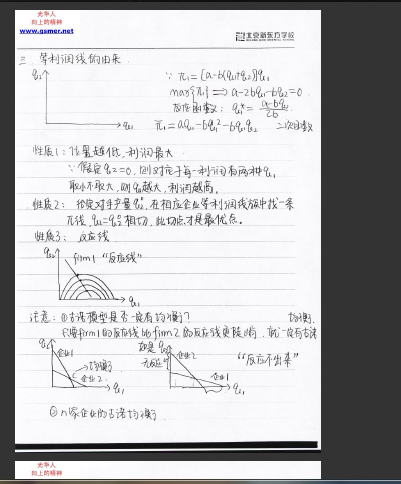 光华人
向上的精神
www.gsmer.net
北京新东方学校
三、等利润线的由来.
q₂
q₁
∵ π₁=[a-b(q₁+q₂)]q₁
max{π₁} ⟹ a-2bq₁-bq₂=0.
反应函数: q₁*=(a-bq₂)/2b
π₁=aq₁-bq₁²-bq₁q₂ 二次函数
性质1: 位置越低,利润最大.
∵ 假定q₂=0, 则对应于每一利润有两种q₁
取小不取大, 则q₁越大, 利润越高.
性质2: 给定对手产量q₂⁰, 在相应企业等利润线族中找一条
π₁线, q₂=q₂⁰相切, 此切点才是最优点.
性质3: 反应线
q₂
firm1 "反应线"
q₁
注意: ①古诺模型是否一定有均衡? 均衡.
只要firm1的反应线比firm2的反应线更陡峭, 就一定有古诺
q₂
企业1
均衡
企业2
q₁
如是
q₂
企业2
企业1
q₁
"反应不出来"
②n家企业的古诺均衡
光华人
向上的精神